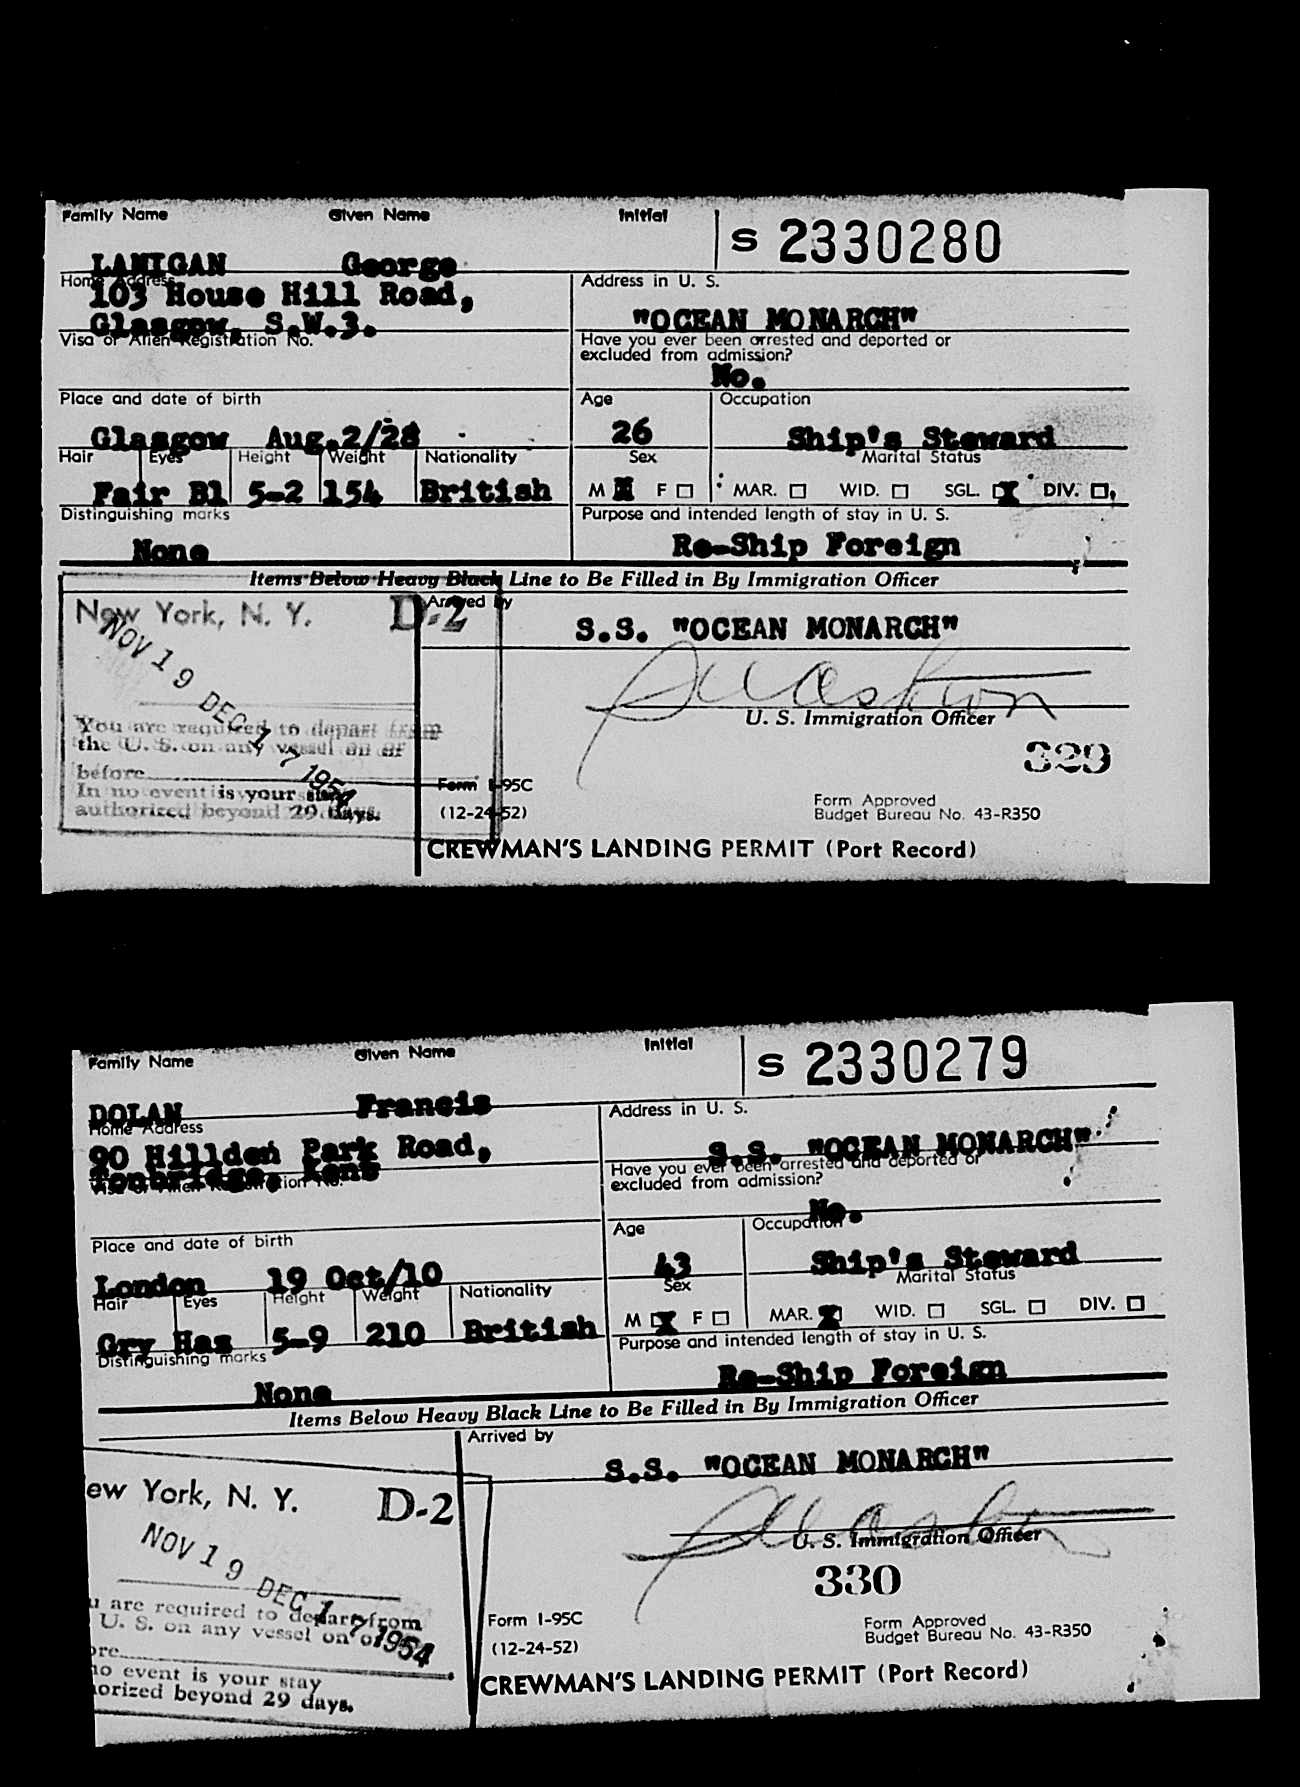 Family Name Given Name Initial S 2330280
LANIGAN George
Home Address Address in U. S.
103 House Hill Road,
Glasgow, S.W.3. "OCEAN MONARCH"
Visa or Alien Registration No. Have you ever been arrested and deported or
excluded from admission?
No.
Place and date of birth Age Occupation
Glasgow Aug.2/28 26 Ship's Steward
Hair Eyes Height Weight Nationality Sex Marital Status
Fair Bl 5-2 154 British M X F MAR. WID. SGL. X DIV.
Distinguishing marks Purpose and intended length of stay in U. S.
None Re-Ship Foreign
Items Below Heavy Black Line to Be Filled in By Immigration Officer
New York, N. Y. D-2 Arrived by
S.S. "OCEAN MONARCH"
NOV 19 DEC 17 1954
You are required to depart from
the U. S. on any vessel on or
before
In no event is your stay
authorized beyond 29 days.
U. S. Immigration Officer
329
Form I-95C Form Approved
(12-24-52) Budget Bureau No. 43-R350
CREWMAN'S LANDING PERMIT (Port Record)
Family Name Given Name Initial S 2330279
DOLAN Francis
Home Address Address in U. S.
90 Hillden Park Road, S.S. "OCEAN MONARCH"
Tonbridge, Kent
Visa or Alien Registration No. Have you ever been arrested and deported or
excluded from admission?
No.
Place and date of birth Age Occupation
London 19 Oct/10 43 Ship's Steward
Hair Eyes Height Weight Nationality Sex Marital Status
Gry Haz 5-9 210 British M X F MAR. X WID. SGL. DIV.
Distinguishing marks Purpose and intended length of stay in U. S.
None Re-Ship Foreign
Items Below Heavy Black Line to Be Filled in By Immigration Officer
Arrived by
S.S. "OCEAN MONARCH"
ew York, N. Y. D-2
NOV 19 DEC 17 1954
u are required to depart from
U. S. on any vessel on or
ore
no event is your stay
orized beyond 29 days.
U. S. Immigration Officer
330
Form I-95C Form Approved
(12-24-52) Budget Bureau No. 43-R350
CREWMAN'S LANDING PERMIT (Port Record)